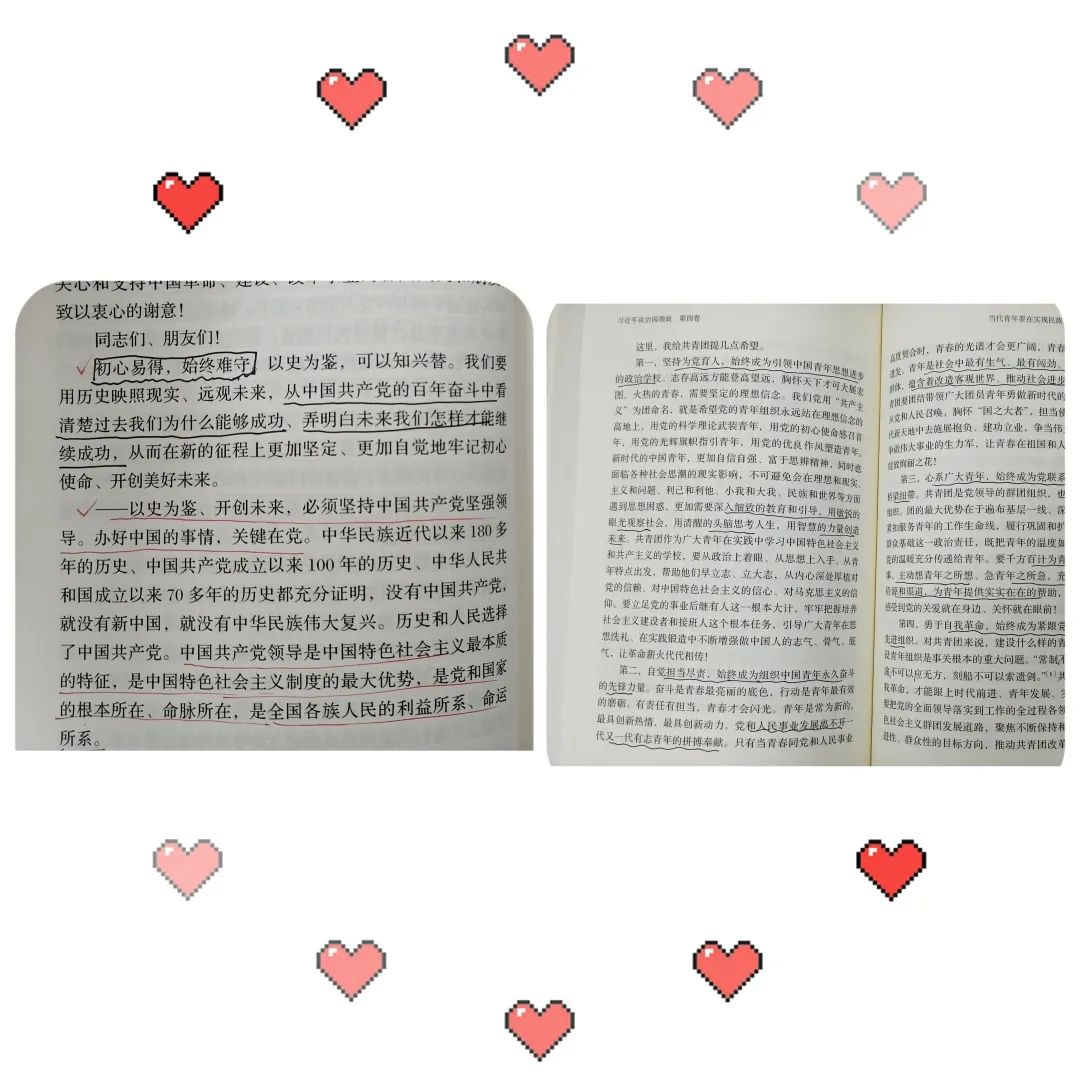 关心和支持中国革命、建设、改革事业
致以衷心的谢意！
同志们、朋友们！
初心易得，始终难守。以史为鉴，可以知兴替。我们要
用历史映照现实、远观未来，从中国共产党的百年奋斗中看
清楚过去我们为什么能够成功、弄明白未来我们怎样才能继
续成功，从而在新的征程上更加坚定、更加自觉地牢记初心
使命、开创美好未来。
——以史为鉴、开创未来，必须坚持中国共产党坚强领
导。办好中国的事情，关键在党。中华民族近代以来 180 多
年的历史、中国共产党成立以来 100 年的历史、中华人民共
和国成立以来 70 多年的历史都充分证明，没有中国共产党，
就没有新中国，就没有中华民族伟大复兴。历史和人民选择
了中国共产党。中国共产党领导是中国特色社会主义最本质
的特征，是中国特色社会主义制度的最大优势，是党和国家
的根本所在、命脉所在，是全国各族人民的利益所系、命运
所系。
习近平谈治国理政 第四卷
这里，我给共青团提几点希望。
第一，坚持为党育人，始终成为引领中国青年思想进步
的政治学校。志存高远方能登高望远，胸怀天下才可大展宏
图。火热的青春，需要坚定的理想信念。我们党用“共产主
义”为团命名，就是希望党的青年组织永远站在理想信念的
高地上，用党的科学理论武装青年，用党的初心使命感召青
年，用党的光辉旗帜指引青年，用党的优良作风塑造青年。
新时代的中国青年，更加自信自强、富于思辨精神，同时也
面临各种社会思潮的现实影响，不可避免会在理想和现实、
主义和问题、利己和利他、小我和大我、民族和世界等方面
遇到思想困惑，更加需要深入细致的教育和引导，用敏锐的
眼光观察社会，用清醒的头脑思考人生，用智慧的力量创造
未来。共青团作为广大青年在实践中学习中国特色社会主义
和共产主义的学校，要从政治上着眼、从思想上入手、从青
年特点出发，帮助他们早立志、立大志，从内心深处厚植对
党的信赖、对中国特色社会主义的信心、对马克思主义的信
仰。要立足党的事业后继有人这一根本大计，牢牢把握培养
社会主义建设者和接班人这个根本任务，引导广大青年在思
想洗礼、在实践锻造中不断增强做中国人的志气、骨气、底
气，让革命薪火代代相传！
第二，自觉担当尽责，始终成为组织中国青年永久奋斗
的先锋力量。奋斗是青春最亮丽的底色，行动是青年最有效
的磨砺。有责任有担当，青春才会闪光。青年是常为新的，
最具创新热情，最具创新动力。党和人民事业发展离不开一
代又一代有志青年的拼搏奉献。只有当青春同党和人民事业
当代青年要在实现民族
高度契合时，青春的光谱才会更广阔，青春
迸发。青年是社会中最有生气、最有闯劲、
群体，蕴含着改造客观世界、推动社会进步
青团要团结带领广大团员青年勇做新时代的
从党和人民召唤，胸怀“国之大者”，担当使
代新天地中去施展抱负、建功立业，争当伟
争做伟大事业的生力军，让青春在祖国和人
绽放绚丽之花！
第三，心系广大青年，始终成为党联系
桥梁纽带。共青团是党领导的群团组织，也
组织。团的最大优势在于遍布基层一线、深
紧扣服务青年的工作生命线，履行巩固和扩
群众基础这一政治责任，既把青年的温度如
党的温暖充分传递给青年。要千方百计为青
事，主动想青年之所想、急青年之所急，充
资源和渠道，为青年提供实实在在的帮助，
感受到党的关爱就在身边、关怀就在眼前！
第四，勇于自我革命，始终成为紧跟党
先进组织。对共青团来说，建设什么样的青
设青年组织是事关根本的重大问题。“常制不
或不可以应无方，刻船不可以索遗剑。”〔1〕共
我革命，才能跟上时代前进、青年发展、实
要把党的全面领导落实到工作的全过程各领
色社会主义群团发展道路，聚焦不断保持和
进性、群众性的目标方向，推动共青团改革